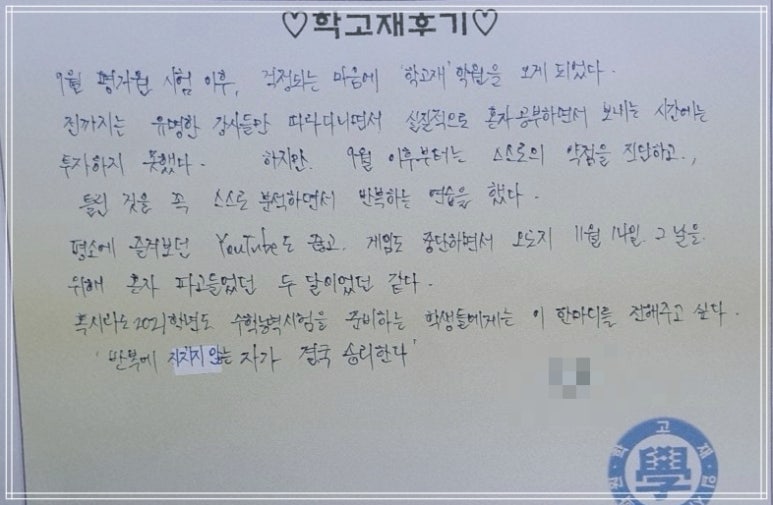 ♡학고재후기♡
9월 평가원 시험 이후, 걱정되는 마음에 '학고재' 학원을 오게 되었다.
전까지는 유명한 강사들만 따라다니면서 실질적으로 혼자 공부하면서 보내는 시간에는
투자하지 못했다. 하지만, 9월 이후부터는 스스로의 약점을 진단하고,
틀린 것을 꼭 스스로 분석하면서 반복하는 연습을 했다.
평소에 즐겨보던 YouTube도 끊고, 게임도 중단하면서 오로지 11월 14일, 그 날을
위해 혼자 파고들었던 두 달이었던 같다.
혹시라도 2021학년도 수학능력시험을 준비하는 학생들에게는 이 한마디를 전해주고 싶다.
'반복에 지치지 않는 자가 결국 승리한다'
학고재
學